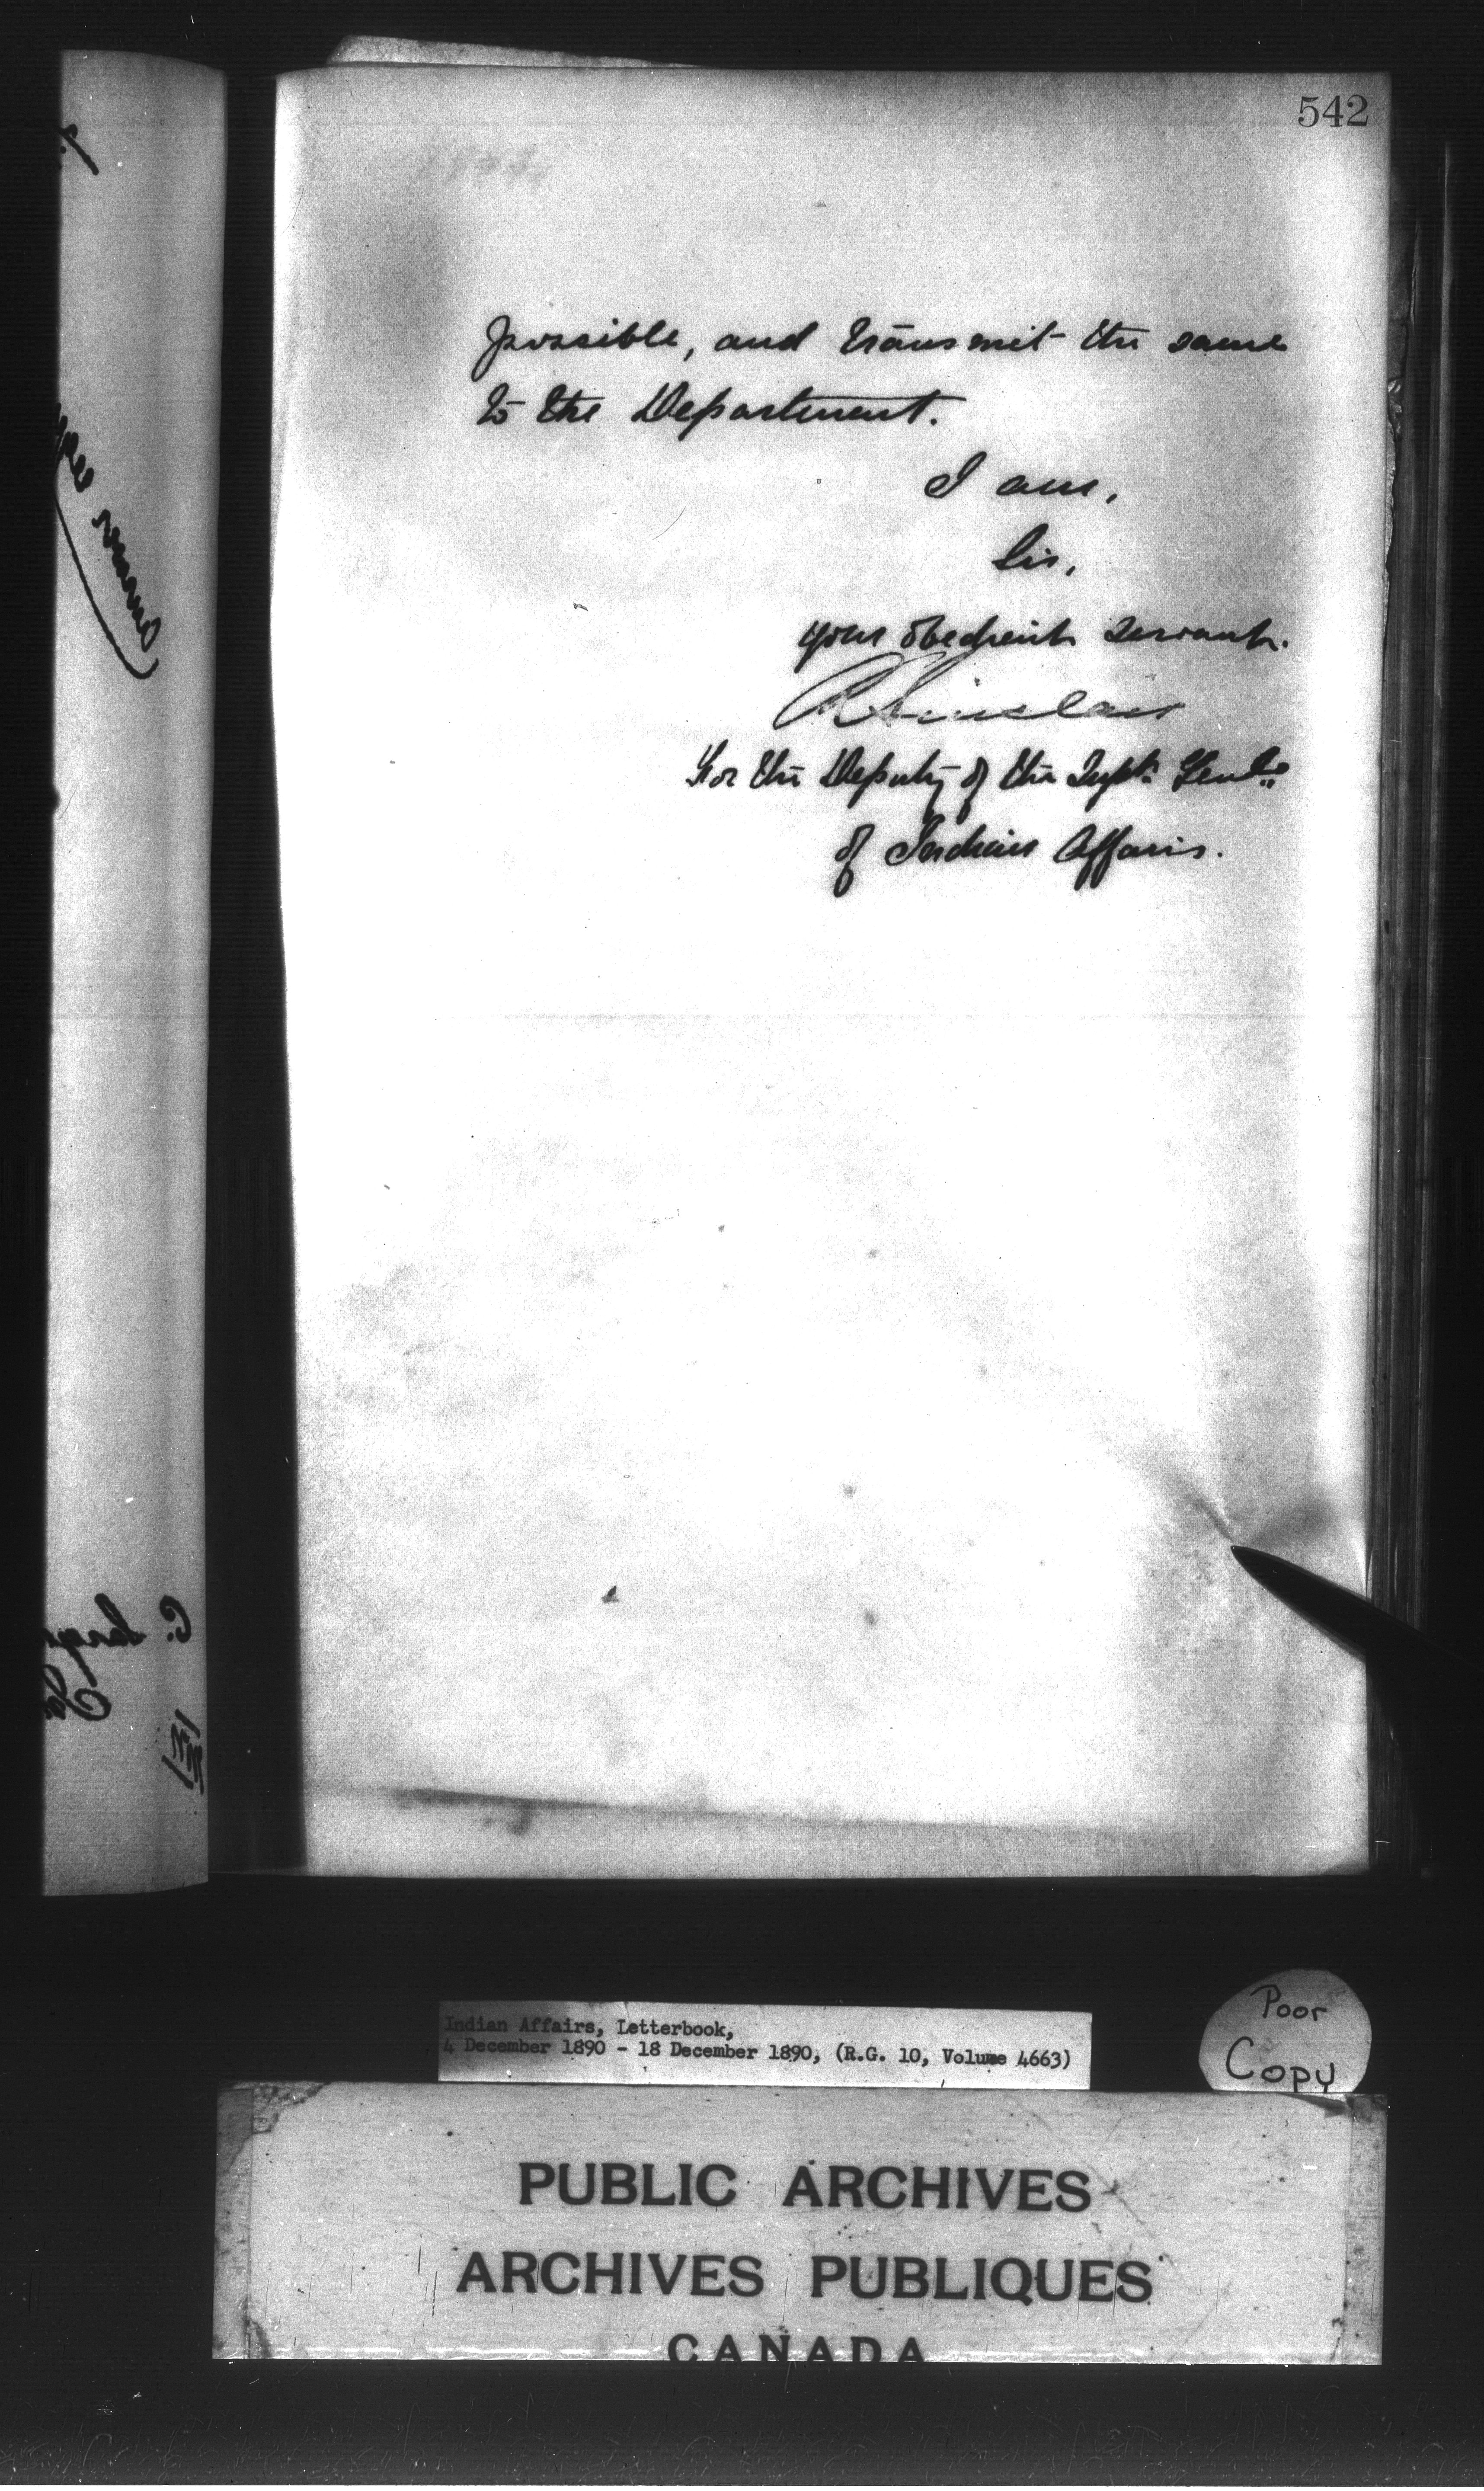 542
possible, and transmit the same
to the Department.
I am,
Sir,
your obedient servant.
R Sinclair
For the Deputy of the Supt. Genl.
of Indian Affairs.
Indian Affairs, Letterbook,
4 December 1890 - 18 December 1890, (R.G. 10, Volume 4663)
Poor
Copy
PUBLIC ARCHIVES
ARCHIVES PUBLIQUES
CANADA